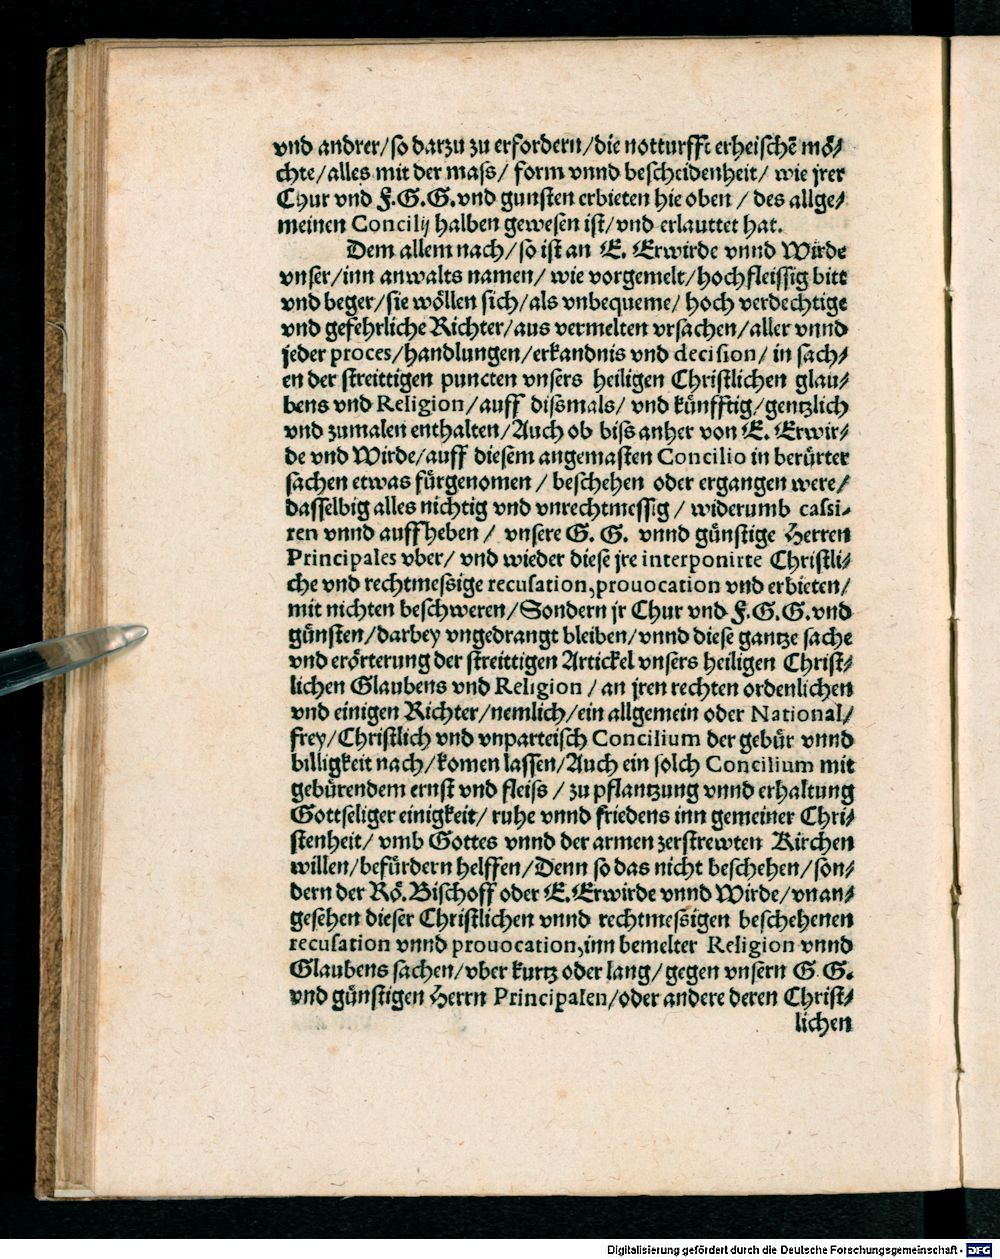 vnd andrer/so darzu zu erfordern/die notturfft erheischē mö/
chte/alles mit der mass/ form vnnd bescheidenheit/ wie jrer
Chur vnd F.G.G.vnd gunsten erbieten hie oben / des allge/
meinen Concilij halben gewesen ist/vnd erlauttet hat.
Dem allem nach/so ist an E. Erwirde vnnd Wirde
vnser/inn anwalts namen/ wie vorgemelt/hochfleissig bitt
vnd beger/sie wöllen sich/als vnbequeme/ hoch verdechtige
vnd gefehrliche Richter/aus vermelten vrsachen/aller vnnd
jeder proces/handlungen/erkandnis vnd decision/ in sach/
en der streittigen puncten vnsers heiligen Christlichen glau/
bens vnd Religion/auff dißmals/ vnd künfftig/gentzlich
vnd zumalen enthalten/Auch ob biß anher von E. Erwir/
de vnd Wirde/auff diesem angemasten Concilio in berürter
sachen etwas fürgenomen / beschehen oder ergangen were/
dasselbig alles nichtig vnd vnrechtmessig / widerumb cassi-
ren vnnd auffheben / vnsere G. G. vnnd günstige Herren
Principales vber/ vnd wieder diese jre interponirte Christli/
che vnd rechtmeßige recusation,prouocation vnd erbieten/
mit nichten beschweren/Sondern jr Chur vnd F.G.G.vnd
günsten/darbey vngedrangt bleiben/vnnd diese gantze sache
vnd erörterung der streittigen Artickel vnsers heiligen Christ/
lichen Glaubens vnd Religion / an jren rechten ordenlichen
vnd einigen Richter/nemlich/ein allgemein oder National/
frey/Christlich vnd vnparteisch Concilium der gebür vnnd
billigkeit nach/komen lassen/Auch ein solch Concilium mit
gebürendem ernst vnd fleiss / zu pflantzung vnnd erhaltung
Gottseliger einigkeit/ ruhe vnnd friedens inn gemeiner Chri/
stenheit/ vmb Gottes vnnd der armen zerstrewten Kirchen
willen/befürdern helffen/Denn so das nicht beschehen/son/
dern der Rö. Bischoff oder E.Erwirde vnnd Wirde/vnan/
gesehen dieser Christlichen vnnd rechtmeßigen beschehenen
recusation vnnd prouocation,inn bemelter Religion vnnd
Glaubens sachen/vber kurtz oder lang/gegen vnsern G.G.
vnd günstigen Herrn Principalen/oder andere deren Christ/
lichen
Digitalisierung gefördert durch die Deutsche Forschungsgemeinschaft - DFG